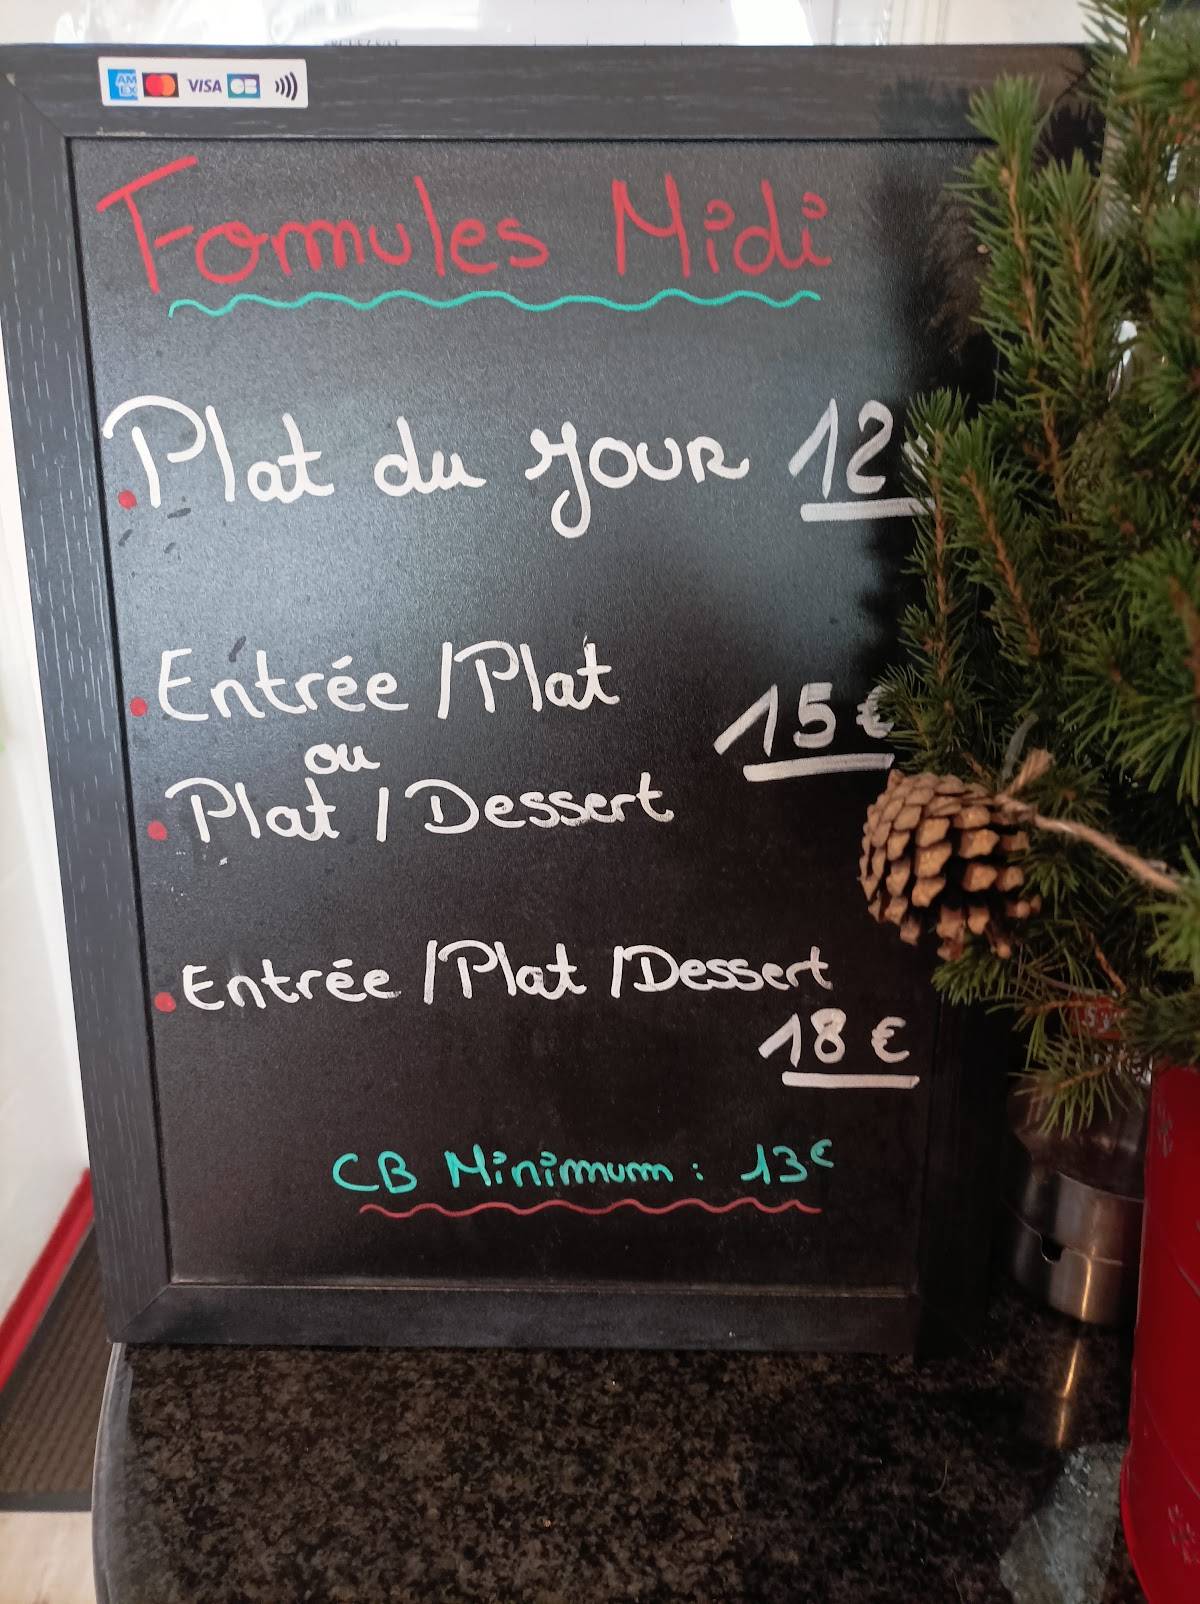 AM
EX
VISA
CB
Formules Midi
Plat du jour 12
Entrée / Plat
ou
15€
Plat / Dessert
Entrée / Plat / Dessert
18 €
CB Minimum : 13€